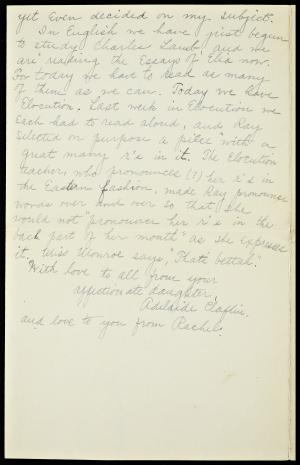 yet even decided on my subject.
In English we have just begun
to study Charles Lamb, and we
are reading the Essays of Elia now.
For today we have to read as many
of them as we can. Today we have
Elocution. Last week in Elocution we
each had to read aloud, and Ray
selected on purpose a piece with a
great many r's in it. The Elocution
teacher, who pronounces (?) her r's in
the Eastern fashion, made Ray pronounce
words over and over so that she
would not "pronouncer her r's in the
back part of her mouth" as she expresses
it. Miss Monroe says, "That's bettah."
With love to all from your
affectionate daughter,
Adelaide Claflin.
and love to you from Rachel.